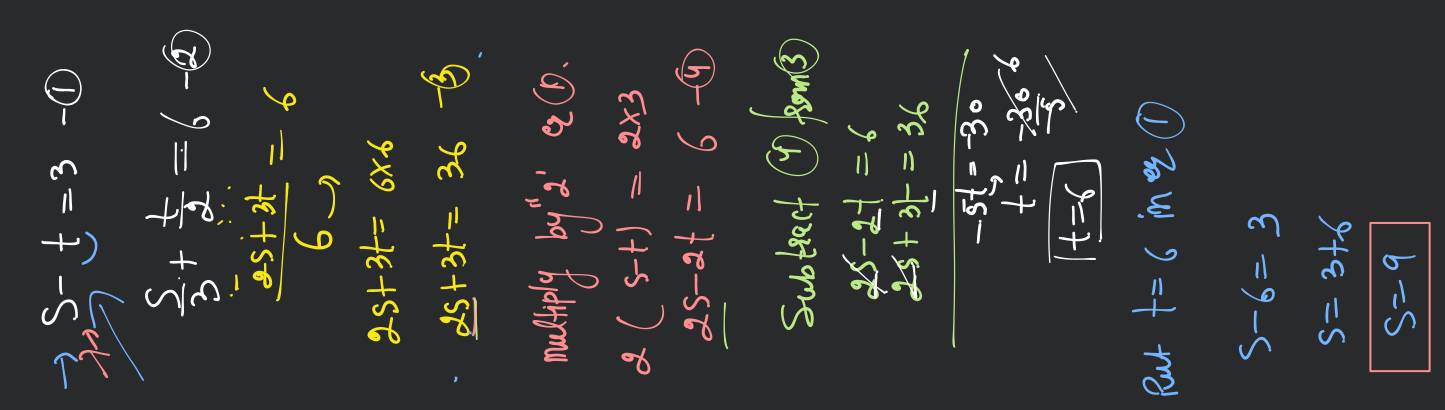 S - t = 3 - ①
S/3 + t/2 = 6 - ②
2S + 3t / 6 = 6
2S + 3t = 6×6
2S + 3t = 36 - ③
multiply by "2" eq ①.
2 ( S - t ) = 2×3
2S - 2t = 6 - ④
Subtract ④ from ③
2S - 2t = 6
2S + 3t = 36
-5t = -30
t = -30/-5 6
t = 6
Put t = 6 in eq ①
S - 6 = 3
S = 3 + 6
S = 9